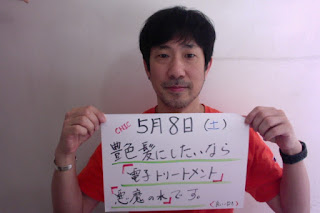 5月8日(土)
艶髪にしたいなら
「電子トリートメント」
「悪魔の水」です。